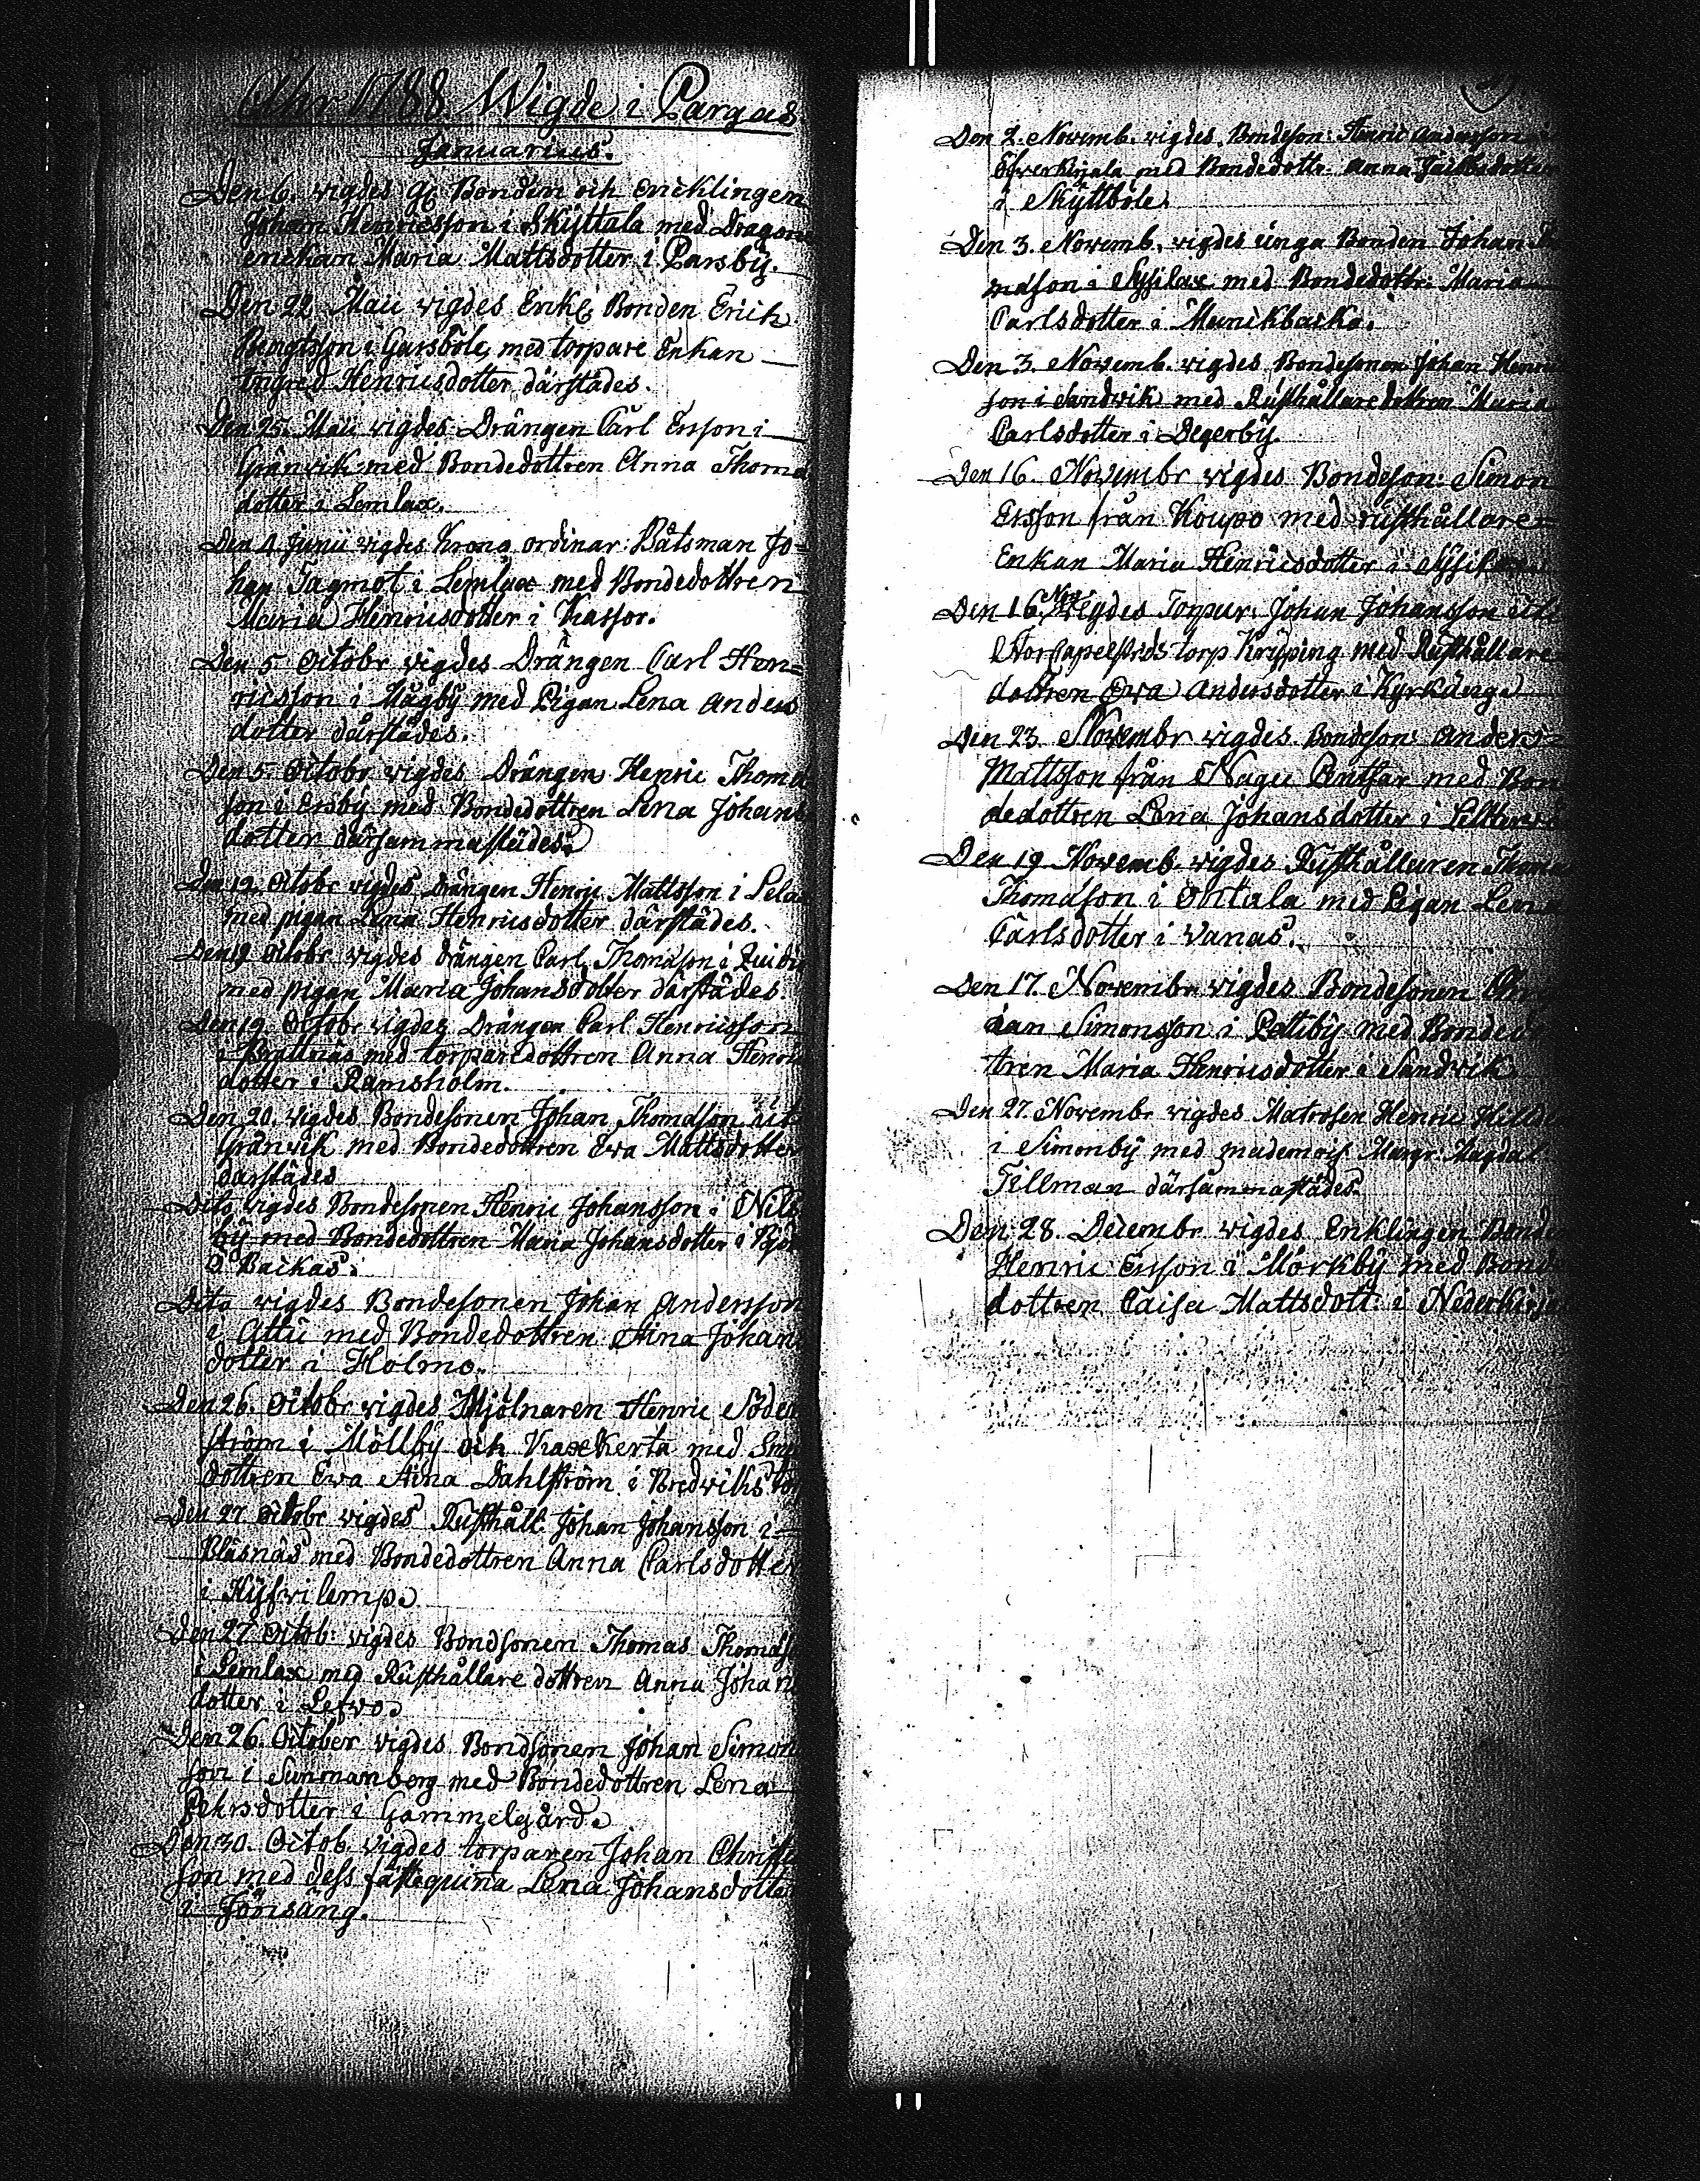 Åhr 1788. Wigde i Pargas
Januarius.
Den 6. wigdes Bonden och encklingen
Johan Henricsson i Skÿttala med Dragon
enckan Maria Mattsdotter i Parsbÿ.
Den 22 Maii wigdes Enkl. Bonden Erich
Bengtsson i Garsböle, med torpare Enkan
Ingred Henricsdotter därstädes.
Den 25. Maii wigdes Drängen Carl Ersson i
Gränwik med Bondedottren Anna Thoma
dotter i Lemlax.
Den 4 Junii wigdes Krono ordinar: Båtsman Jo=
han Tagmot i Lemlax med Bondedottren
Maria Henricsdotter i Kassor.
Den 5. Octobr wigdes Drängen Carl Hen=
ricsson i Mågbÿ med Pigan Lena Anders
dotter därstädes.
Den 5. Octobr wigdes Drängen Henric Thoma
son i Ersbÿ med Bondedottren Lena Johans
dotter därsammastädes.
Den 12. Octobr wigdes Drängen Henric Mattsson i Lela
med pigan Lena Henricsdotter därstädes.
Den 19 Octobr wigdes drängen Carl Thomasson i
med pigan Maria Johansdotter därstädes.
Den 19. Octobr wigdes Drängen Carl Henricsson
i Prattnäs med torparedottren Anna Henric
dotter i Ramsholm.
Den 20. wigdes Bondesonen Johan Thomasson
Gränwik med Bondedottren Ewa Mattsdotter
därstädes
Dito wigdes Bondesonen Henric Johansson i Nils
bÿ med Bondedottren Maria Johansdotter i
Backas.
Dito wigdes Bondesonen Johan Andersson
i Attu med Bondedottren Stina Johans
dotter i Holmo.
Den 26. Octobr wigdes Mjölnaren Henric Söder
ström i Möllbÿ och Kraxkerta med
dottren Ewa Stina Dahlström i Bredwiks
Den 27 Octobr wigdes Rusthåll. Johan Johansson i
Bläsnäs med Bondedottren Anna Carlsdotter
i Hÿfwilemp.
Den 27 Octob: wigdes Bondsonen Thomas Thomass
i Lemlax med Rusthållare dottren Anna Johans
dotter i Lefwo.
Den 26. October wigdes Bondsonen Johan Simon
son i Sunnanberg med Bondedottren Lena
Pehrsdotter i Gammelgård.
Den 30. Octob. wigdes torparen Johan Christ
son med dess fästequina Lena Johansdotter
i Jönsäng.
Den 2. Novemb. wigdes Bondeson: Henric Andersson
Öfwerkirjala med Bondedottr. Anna Jacobsdotter
i Skÿttböle.
Den 3. Novemb. wigdes unga Bonden Johan
masson i Sÿssilax med Bondedottr. Maria
Carlsdotter i Munckbacka.
Den 3. Novemb. wigdes Bondesonen Johan Henric
son i Sandwik med Rusthållare dottren Maria
Carlsdotter i Degerbÿ.
Den 16. Novembr wigdes Bondeson: Simon
Ersson från Koupo med rusthållare
Enkan Maria Henricsdotter i Sÿssilax
Den 16 Nov wigdes Torpar. Johan Johansson
torp Krÿping med Rusthållare
dottren Ewa Andersdotter i Kyrkänge
Den 23. Novembr wigdes Bondeson: Anders
Mattsson från Nagu Pentsar med Bon
dedottren Lena Johansdotter i
Den 19 Novemb. wigdes Rusthållaren Thomas
Thomasson i Ontala med Pigan Lena
Carlsdotter i Wanas.
Den 17. Novembr wigdes Bondesonen
ian Simonsson i Pettibÿ med Bonded
tren Maria Henricsdotter i Sandwik
Den 27. Novembr wigdes Matrosen Henric
i Simonbÿ med mademois. Margr. Magdal
Tillman därsammastädes.
Den 28. Decembr wigdes Enklingen Bonde
Henric Ersson i Mörkbÿ med Bonde
dottren Caisa Mattsdott: i Nederkirja